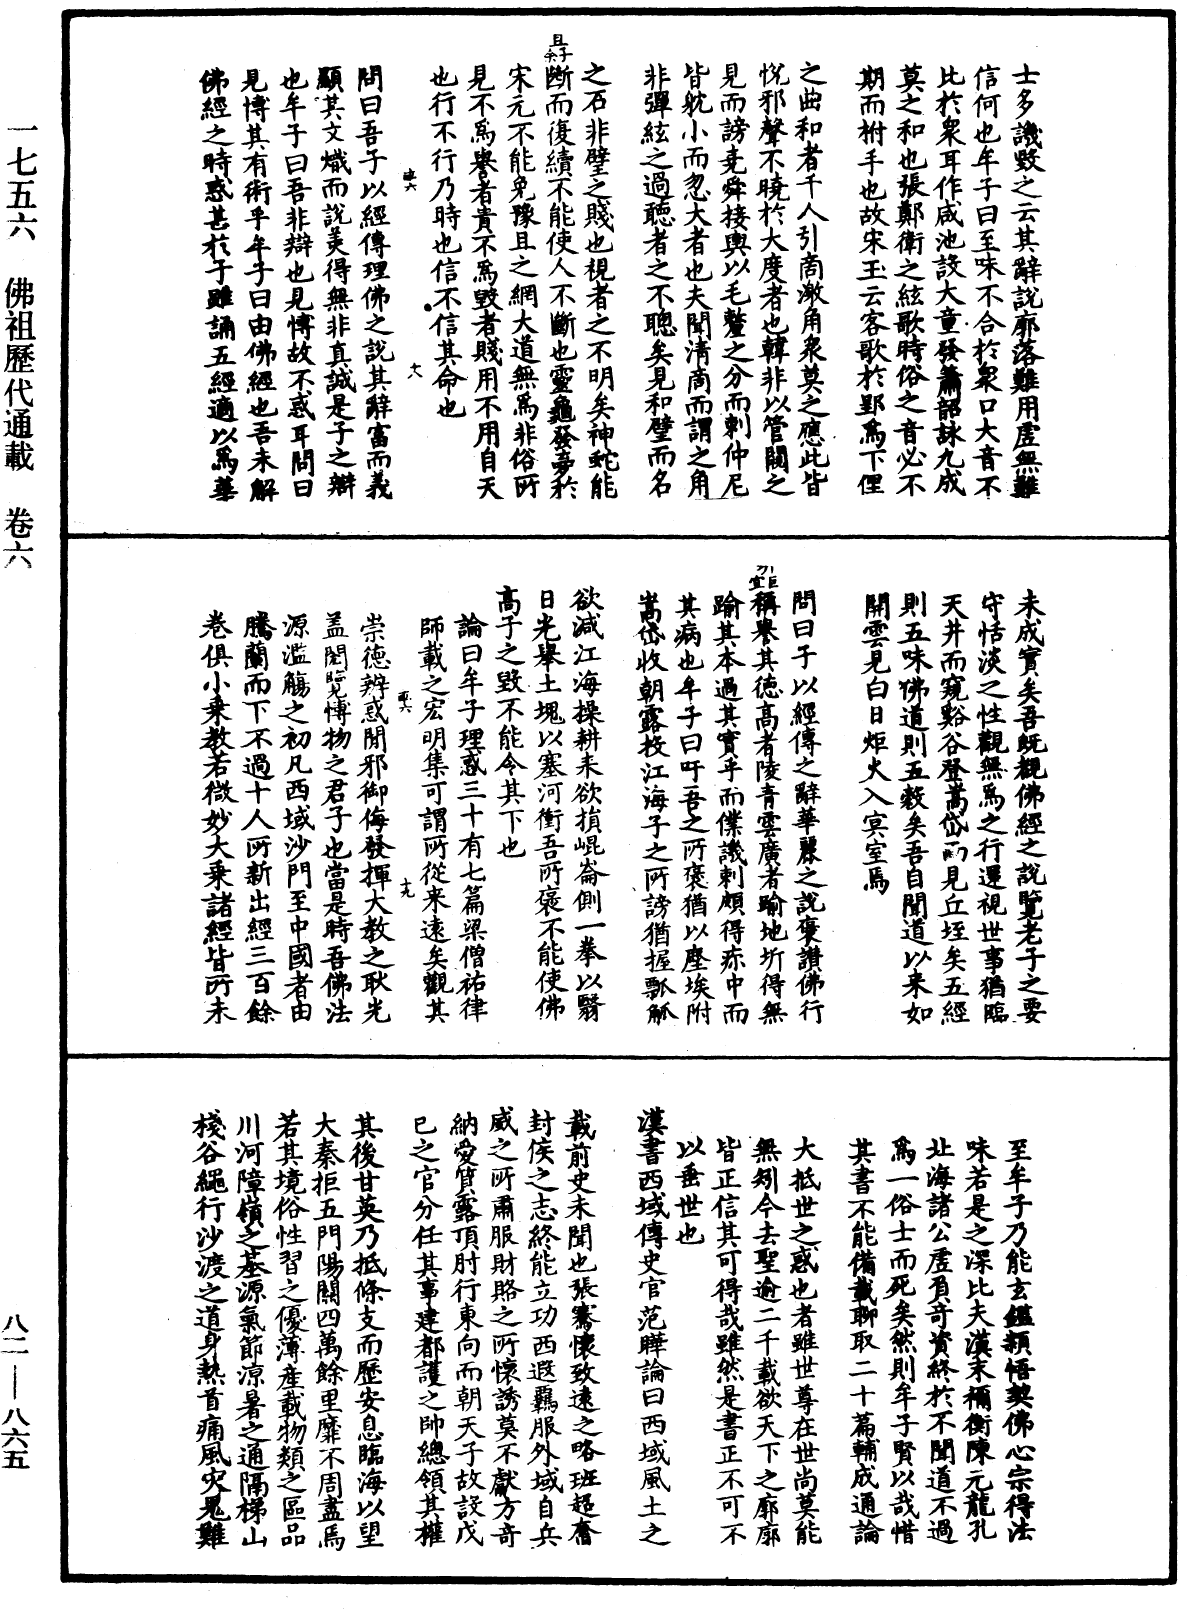 士多譏毀之云其辭說廓落難用虛無難
信何也牟子曰至味不合於衆口大音不
比於衆耳作咸池設大章發簫韶詠九成
莫之和也張鄭衛之絃歌時俗之音必不
期而拊手也故宋玉云客歌於郢爲下俚
之曲和者千人引商激角衆莫之應此皆
悅邪聲不曉於大度者也韓非以管闚之
見而謗堯舜接輿以毛氂之分而刺仲尼
皆躭小而忽大者也夫聞清商而謂之角
非彈絃之過聽者之不聰矣見和璧而名
之石非璧之賤也視者之不明矣神蛇能
斷而復續不能使人不斷也靈龜發夢於
宋元不能免豫且之網大道無爲非俗所
見不爲譽者貴不爲毀者賤用不用自天
也行不行乃時也信不信其命也
問曰吾子以經傳理佛之說其辭富而義
顯其文熾而說美得無非真誠是子之辯
也牟子曰吾非辯也見博故不惑耳問曰
見博其有術乎牟子曰由佛經也吾未解
佛經之時惑甚於子雖誦五經適以爲華
未成實矣吾旣觀佛經之說覽老子之要
守恬淡之性觀無爲之行還視世事猶臨
天井而窺谿谷登嵩岱而見丘垤矣五經
則五味佛道則五穀矣吾自聞道以来如
開雲見白日炬火入冥室焉
問曰子以經傳之辭華麗之說襃讚佛行
稱譽其德高者陵青雲廣者踰地圻得無
踰其本過其實乎而僕譏刺頗得疹中而
其病也牟子曰吁吾之所褒猶以塵埃附
嵩岱收朝露投江海子之所謗猶握瓢觚
欲減江海操耕耒欲損崐崙側一拳以翳
日光舉土塊以塞河衝吾所襃不能使佛
高子之毀不能令其下也
論曰牟子理惑三十有七篇梁僧祐律
師載之宏明集可謂所從来遠矣觀其
崇德辨惑閑邪御侮發揮大教之耿光
盖閎覽博物之君子也當是時吾佛法
源濫觴之初凡西域沙門至中國者由
騰蘭而下不過十人所新出經三百餘
卷俱小乘教若微妙大乘諸經皆所未
至牟子乃能玄鑑頴悟契佛心宗得法
味若是之深比夫漢末禰衡陳元龍孔
北海諸公虛負奇資終於不聞道不過
爲一俗士而死矣然則牟子賢以哉惜
其書不能備載聊取二十篇輔成通論
大抵世之惑也者雖世尊在世尚莫能
無矧今去聖逾二千載欲天下之廓廓
皆正信其可得哉雖然是書正不可不
以垂世也
漢書西域傳史官范曄論曰西域風土之
載前史未聞也張騫懷致遠之略班超奮
封侯之志終能立功西遐羈服外域自兵
威之所肅服財賂之所懷誘莫不獻方奇
納愛質露頂肘行東向而朝天子故設戊
己之官分任其事建都護之帥總領其權
其後甘英乃抵條支而歷安息臨海以望
大秦拒五門陽關四萬餘里靡不周盡焉
若其境俗性習之優薄產載物類之區品
川河障嶺之基源氣節涼暑之通隔梯山
棧谷繩行沙渡之道身熱首痛風灾鬼難
一七五六 佛祖歷代通載 卷六
八二—八六五